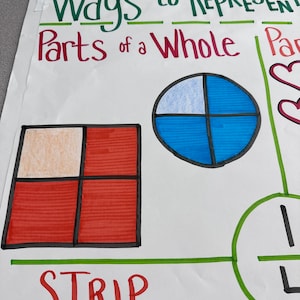 Ways to Represent
Parts of a Whole
STRIP